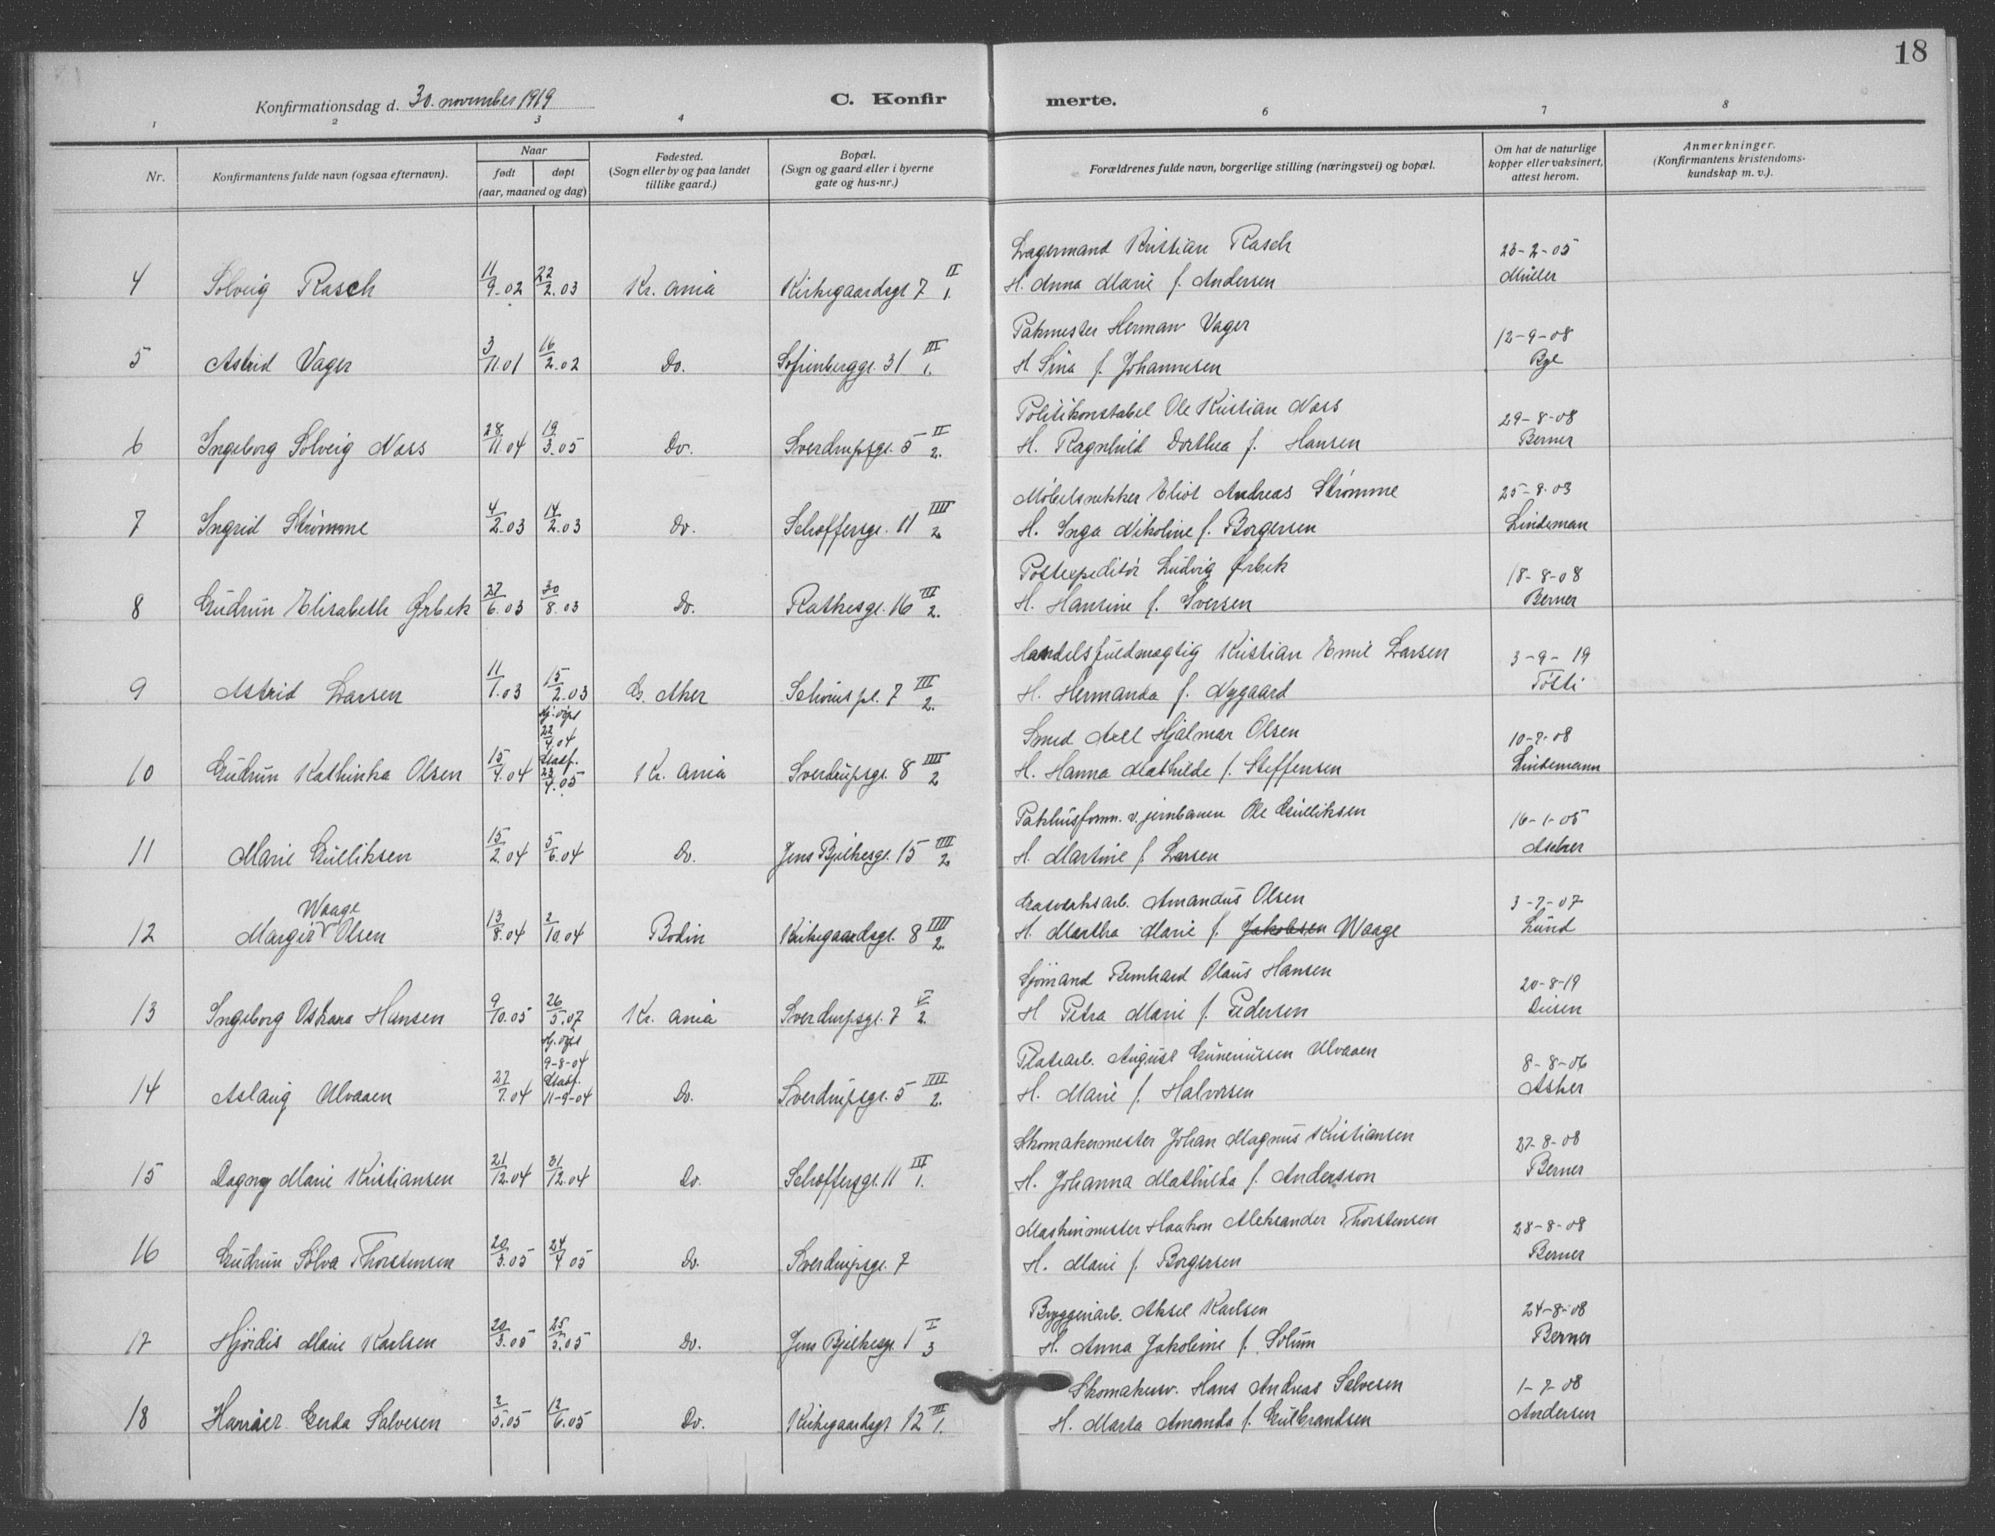 18
Konfirmationsdag d. 30. november 1919
C. Konfir merte.
1 2 3 4 6 7 8
Nr.
Konfirmantens fulde navn (ogsaa efternavn).
Naar
født døpt
(aar, maaned og dag)
Fødested.
(Sogn eller by og paa landet
tillike gaard.)
Bopæl.
(Sogn og gaard eller i byerne
gate og hus-nr.)
Forældrenes fulde navn, borgerlige stilling (næringsvei) og bopæl.
Om hat de naturlige
kopper eller vaksinert,
attest herom.
Anmerkninger.
(Konfirmantens kristendoms-
kundskap m. v.).
Lagermand Kristian Rasch 23-2-05
4 Solveig Rasch 11/9.02 22/2.03 Kr.ania Kirkegaardsgt 7 II/1. H. Anna Marie f. Andersen Müller
Pakmester Herman Vager 12-9-08
5 Astrid Vager 3/11.01 16/2.02 Do. Sofienberggt. 31 III/1. H. Sina f. Johannesen Bye
Politikonstabel Ole Kristian Næss 29-8-08
6 Ingeborg Solveig Næss 28/11.04 19/3.05 Do. Sverdrupsgt. 5 II/2. H. Ragnhild Dorthea f. Hansen Berner
Møbelsnekker Eliot Andreas Strømme 25-8-03
7 Ingrid Strømme 4/2.03 14/2.03 Do. Schoffersgt. 11 IIII/2 H. Inga Nikoline f. Borgersen Lindeman
Postexpeditør Ludvig Ørbek 18-8-08
8 Gudrun Elisabeth Ørbek 27/6.03 30/8.03 Do. Rathkesgt. 16 III/2. H. Hansine f. Iversen Berner
Handelsfuldmægtig Kristian Emil Larsen 3-9-19
9 Astrid Larsen 11/1.03 15/2.03 Aker Schous pl. 7 III/2. H. Hermanda f. Nygaard Totti
Hj. døpt
22/4.04
Smed Axel Hjalmar Olsen 10-7-08
Stadf.
10 Gudrun Kathinka Olsen 15/4.04 23/4.05 Kr. ania Sverdrupsgt. 8 IIII/2 H. Hanna Mathilde f. Steffensen Lindemann
Pakhusform. v. jernbanen Ole Gulliksen 16-1-05
11 Marie Gulliksen 15/2.04 5/6.04 Do. Jens Bjelkesgt. 15 IIII/2. H. Martine f. Larsen Asker
Waage
Gasverksarb. Amandus Olsen 3-7-07
12 Margit Olsen 13/8.04 2/10.04 Bodin Kirkegaardsgt. 8 IIII/2. H. Martha Marie f. Jakobsen Waage Lund
Sjømand Bernhard Olaus Hansen 20-8-19
13 Ingeborg Oskara Hansen 9/10.05 26/5.07 Kr. ania Sverdrupsgt. 7 V/2. H Petra Marie f. Pedersen
Hj. døpt
9-8-04
Platearb. August Guneriussen Ulvaaen 8-8-06
Stadf.
14 Aslaug Ulvaaen 27/7.04 11-9-04 Do. Sverdrupsgt. 5 IIII/2. H. Marie f. Halvorsen Asker
Skomakermester Johan Magnus Kristiansen 27-8-08
15 Dagny Marie Kristiansen 21/12.04 31/12.04 Do. Schoffersgt. 11 III/1. H. Johanna Mathilda f. Andersson Berner
Maskinmester Haakon Aleksander Thorstensen 28-8-08
16 Gudrun Sølva Thorstensen 20/3.05 24/4.05 Do. Sverdrupsgt. 7 H. Marie f. Borgersen Berner
Bryggeriarb. Aksel Karlsen 24-8-08
17 Hjørdis Marie Karlsen 20/3.05 25/5.05 Do. Jens Bjelkesgt. 1 I/3 H. Anna Jakobine f. Solum Berner
Skomakersv. Hans Andreas Salvesen 1-7-08
18 Harriet Gerda Salvesen 2/5.05 12/6.05 Do. Kirkegaardsgt 12 III/1. H. Marta Amanda f. Gulbrandsen Andersen